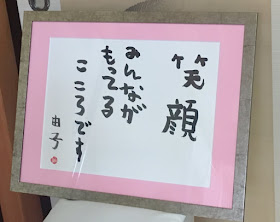 笑顔
みんなが
もってる
こころです
由子